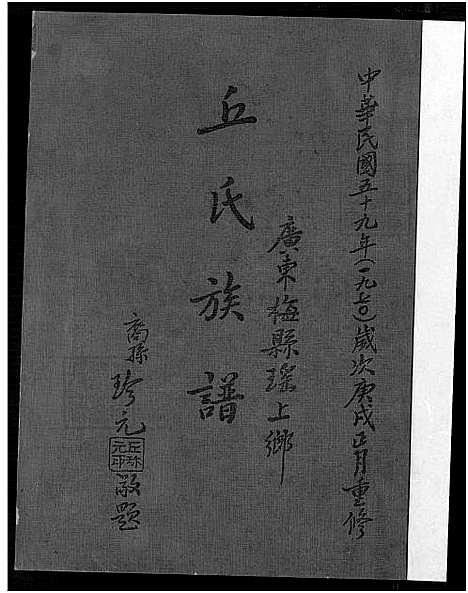 中華民國五十九年(一九七〇)歲次庚戌正月重修
廣東梅縣瑤上鄉
丘氏族譜
裔孫珍元敬題
丘珍元印